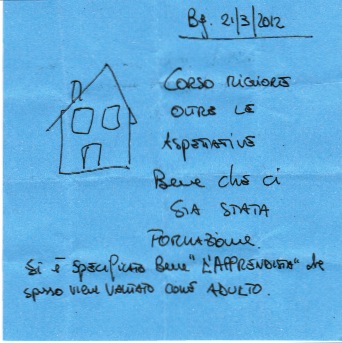 Bg. 21/3/2012
CORSO MIGLIORE
OLTRE LE
ASPETTATIVE
Bene che ci
SIA STATA
FORMAZIONE.
Si è SPECIFICATO Bene "L'APPRENDISTA" che
spesso viene VALUTATO come ADULTO.